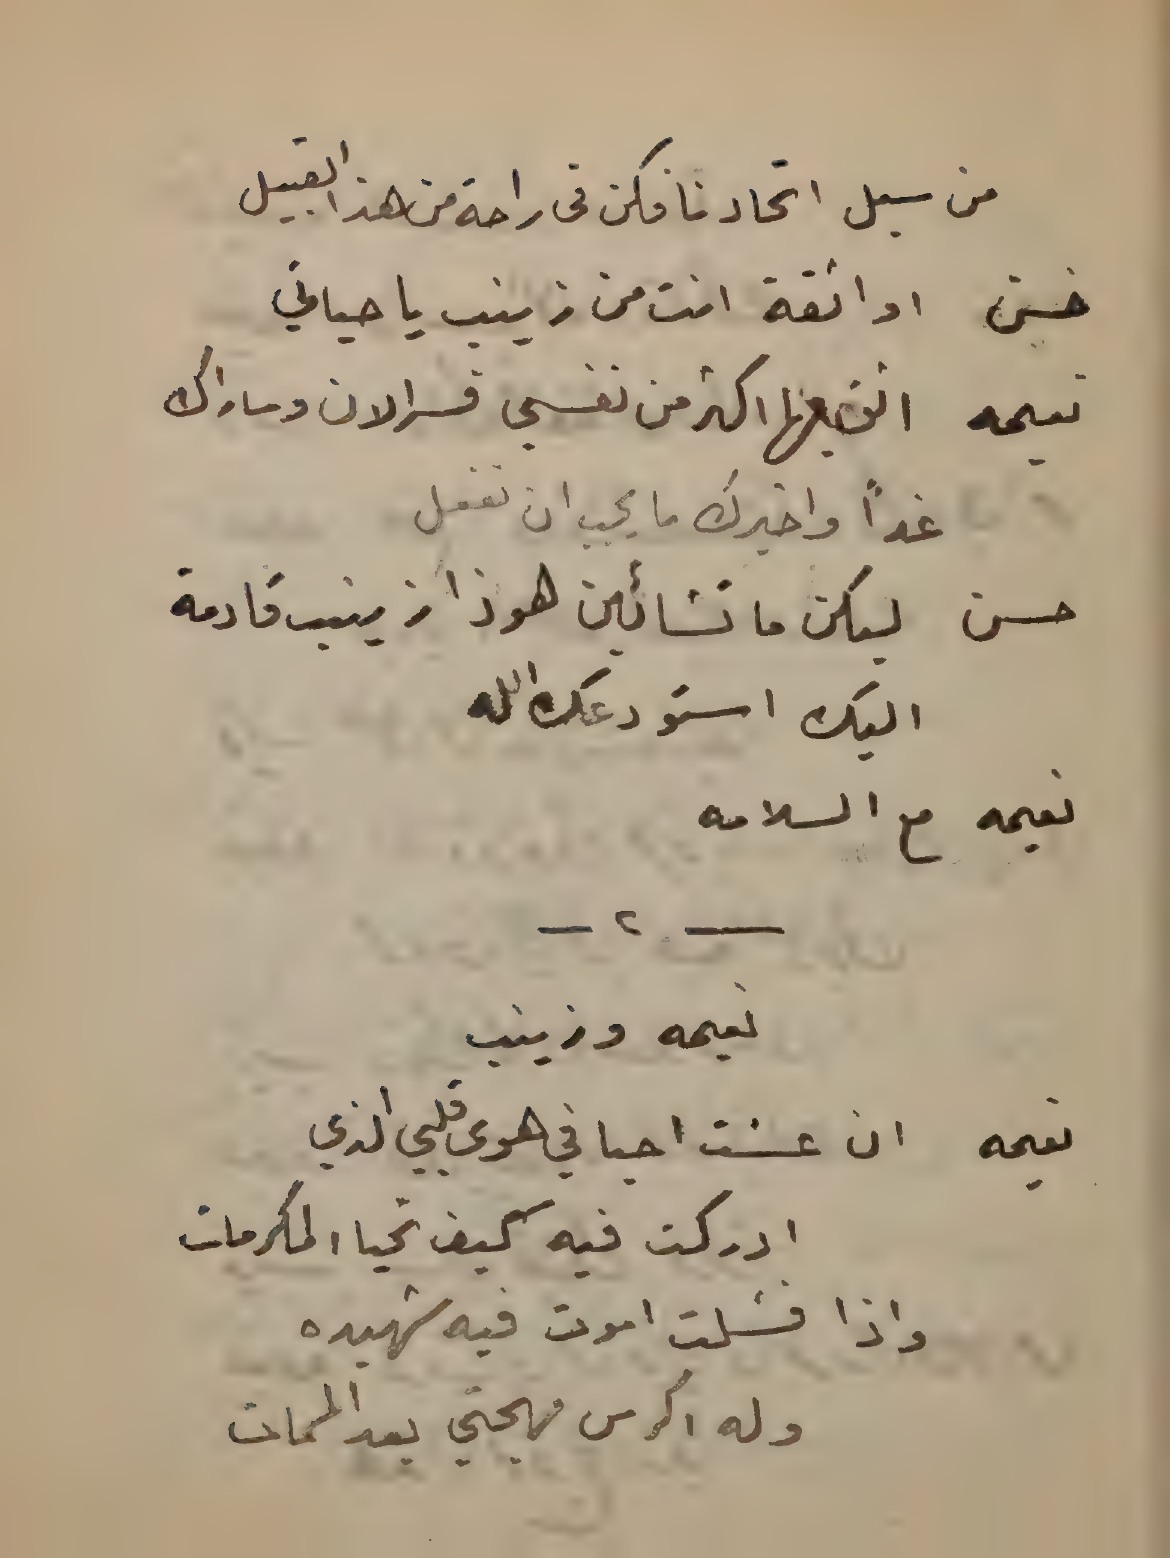 من سبيل اتحادنا فكن فى راحة من هذا القبيل
حسن اواثقة انت من زينب يا حياتي
نعيمه اثق بها اكثر من نفسي فسر الان وساراك
غداً واخبرك ما يجب ان تفعل
حسن ليكن ما تشائين هوذا زينب قادمة
اليك استودعك الله
نعيمه مع السلامه
— ٢ —
نعيمه وزينب
نعيمه ان عشت احيا في هوى قلبي الذي
ادركت فيه كيف تحيا المكرمات
واذا فشلت اموت فيه شهيده
وله اكرس مهجتي بعد الممات